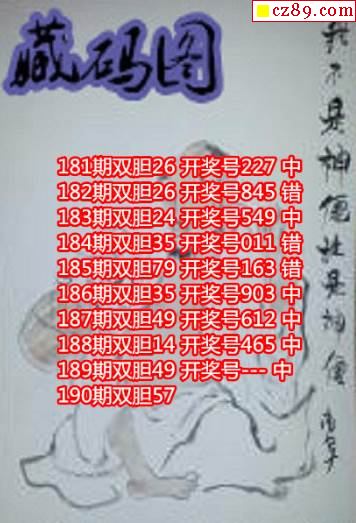 cz89.com
藏码图
181期双胆26 开奖号227 中
182期双胆26 开奖号845 错
183期双胆24 开奖号549 中
184期双胆35 开奖号011 错
185期双胆79 开奖号163 错
186期双胆35 开奖号903 中
187期双胆49 开奖号612 中
188期双胆14 开奖号465 中
189期双胆49 开奖号--- 中
190期双胆57
我不是神僊